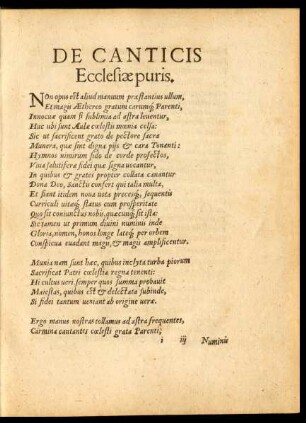 DE CANTICIS
Ecclesiæ puris.
NOn opus est aliud manuum præstantius ullum,
Et magis Æthereo gratum carumq; Parenti,
Innocuæ quàm si sublimia ad astra leuentur,
Huc ubi sunt Aulæ cœlestis mœnia celsa:
Sic ut sacrificent grato de pectore sacra
Munera, quæ sint digna pijs & cara Tonanti:
Hymnos nimirum fido de corde profectos,
Viua salutiferæ fidei quæ signa uocantur,
In quibus & grates propter collata canantur
Dona Deo, sancti confert qui talia multa,
Et fiant itidem noua uota precesq́;, sequentis
Curriculi uitæq́; status cum prosperitate
Quo sit coniunctus nobis, quæcunq; sit ista:
Sed tamen ut primum diuini numinis inde
Gloria, nomen, honos longè lateq́; per orbem
Conspicua euadant magis, & magis amplificentur.
Munia nam sunt hæc, quibus inclyta turba piorum
Sacrificat Patri cœlestia regna tenenti:
Hi cultus ueri semper quos summa probauit
Maiestas, quibus est & delectata subinde,
Si fidei tantum ueniant ab origine ueræ.
Ergo manus nostras tollamus ad astra frequentes,
Carmina cantantes cœlesti grata Parenti;
i iij Numinis